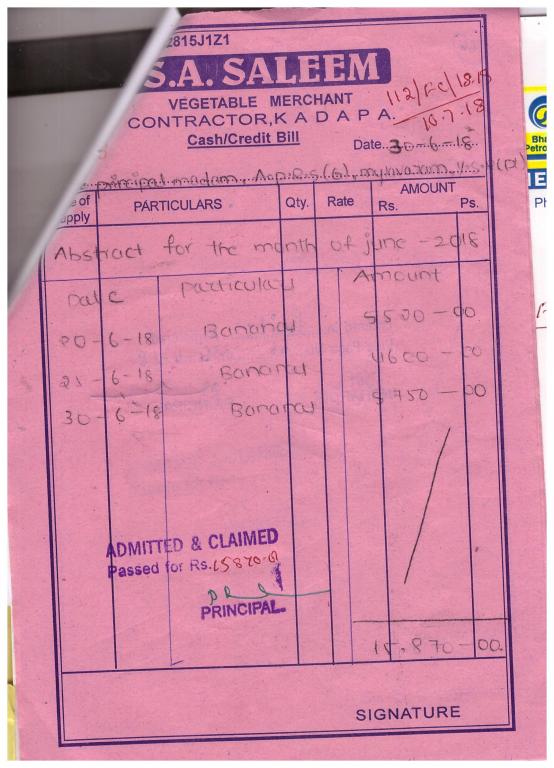 2815J1Z1
S.A. SALEEM
VEGETABLE MERCHANT
CONTRACTOR, KADAPA.
Cash/Credit Bill
112/FC/18.19
10.7.18
Date. 30-6-18
principal madam, A.p.R.S (G), mylavaram,
of
pply
PARTICULARS
Qty.
Rate
AMOUNT
Rs.
Ps.
Abstract for the month of june - 2018
Date particulars Amount
20-6-18 Bananas 5520-00
25-6-18 Bananas 4600-00
30-6-18 Bananas 5750-00
ADMITTED & CLAIMED
Passed for Rs. 15870-00
PRINCIPAL
15,870-00
SIGNATURE